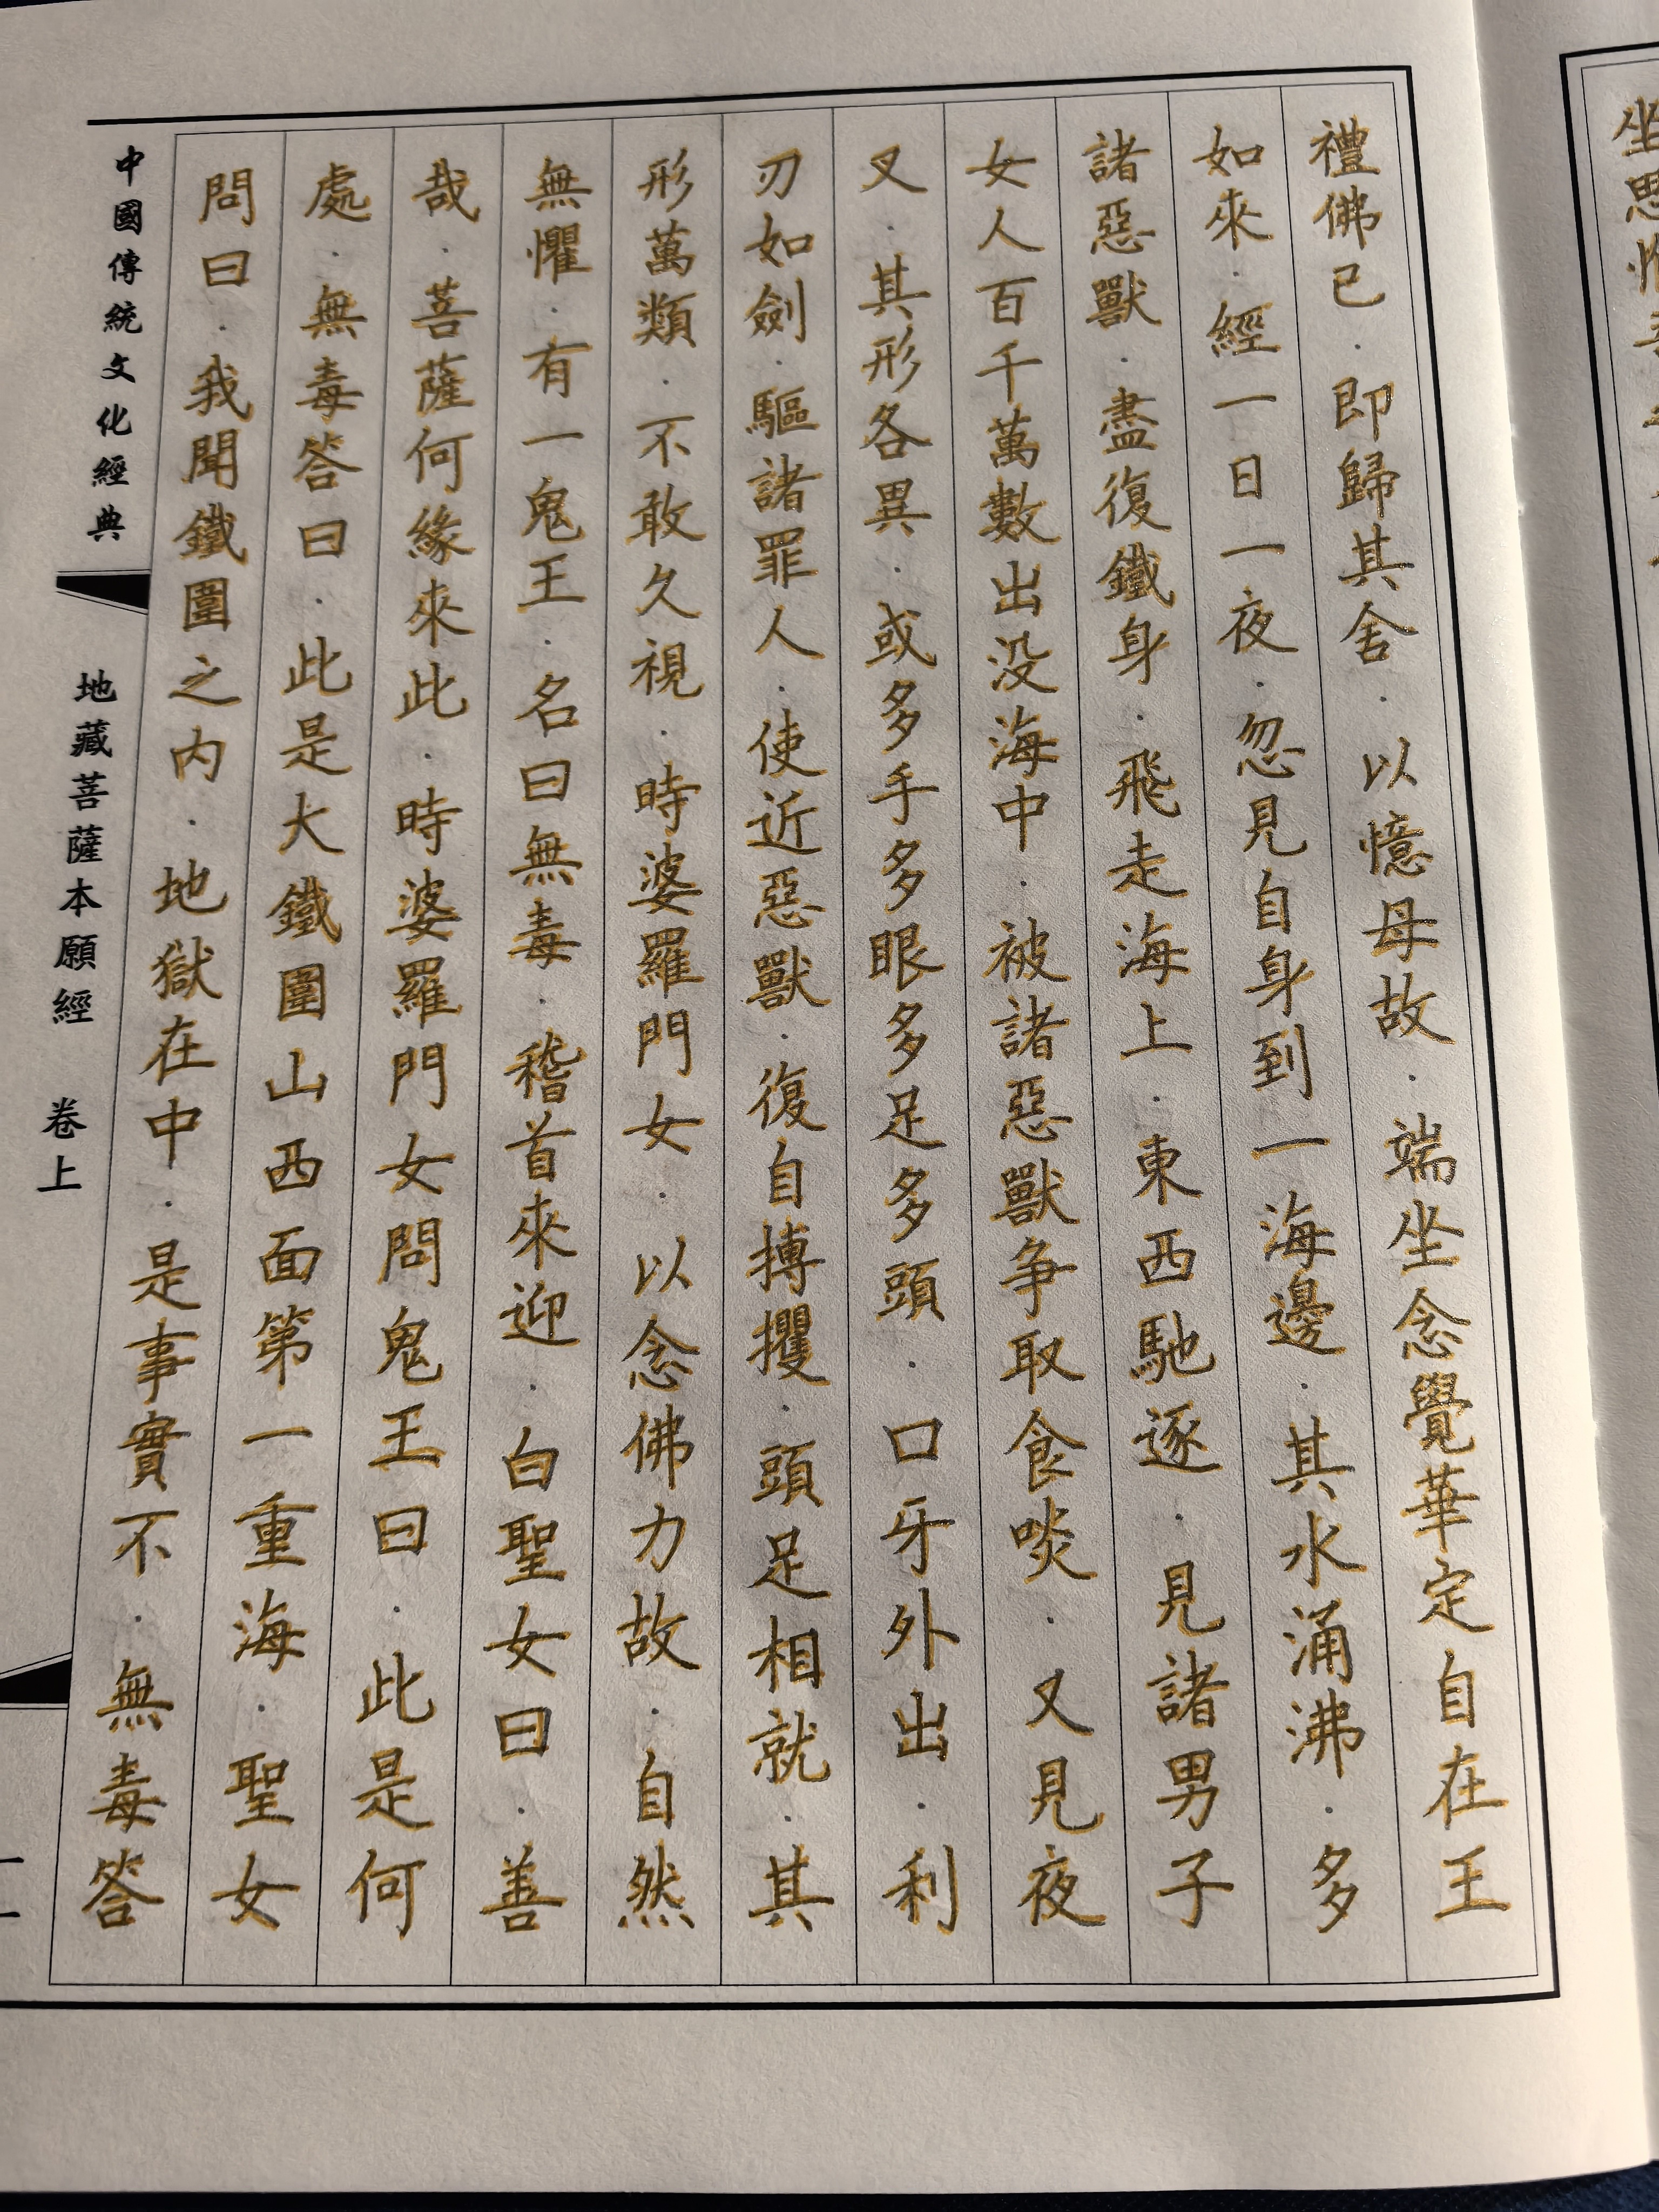 坐思惟菩
禮佛已．即歸其舍．以憶母故．端坐念覺華定自在王
如來．經一日一夜．忽見自身到一海邊．其水涌沸．多
諸惡獸．盡復鐵身．飛走海上．東西馳逐．見諸男子
女人百千萬數出没海中．被諸惡獸争取食啖．又見夜
叉．其形各異．或多手多眼多足多頭．口牙外出．利
刃如劍．驅諸罪人．使近惡獸．復自搏攫．頭足相就．其
形萬類．不敢久視．時婆羅門女．以念佛力故．自然
無懼．有一鬼王．名曰無毒．稽首來迎．白聖女曰．善
哉．菩薩何緣來此．時婆羅門女問鬼王曰．此是何
處．無毒答曰．此是大鐵圍山西面第一重海．聖女
問曰．我聞鐵圍之内．地獄在中．是事實不．無毒答
中國傳統文化經典
地藏菩薩本願經 卷上